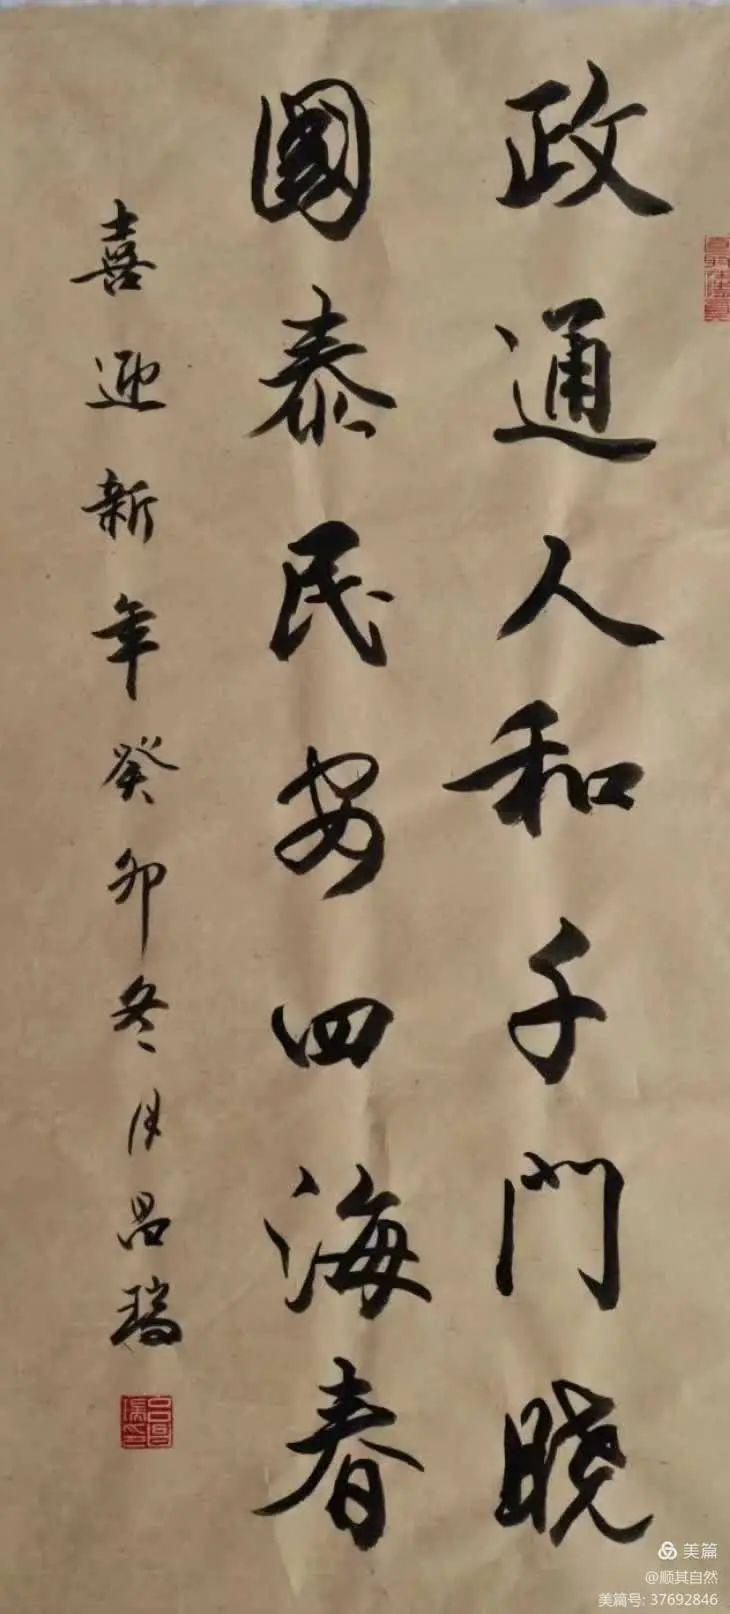 政通人和千门晓
國泰民安四海春
喜迎新年癸卯冬月吕瑞
美篇
@顺其自然
美篇号: 37692846